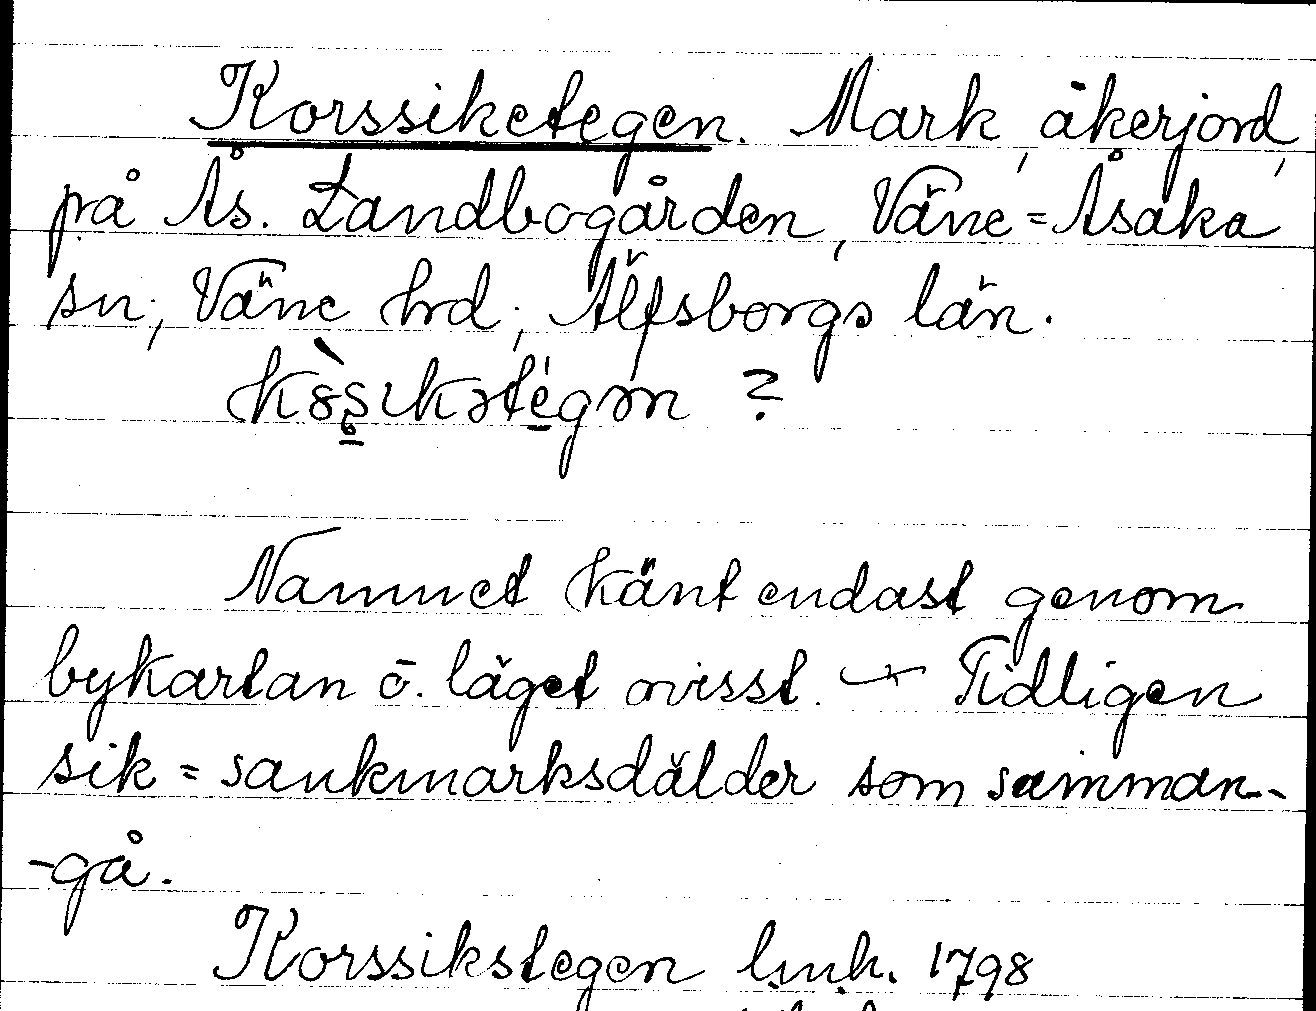 Korssiketegen. Mark, åkerjord,
på Ås. Landbogården, Väne=Åsaka
sn; Väne hrd; Älfsborgs län.
?
Namnet känt endast genom
bykartan o. läget ovisst. — Tidligen
sik = sankmarksdälder som samman-
-gå.
Korssikstegen lmk. 1798